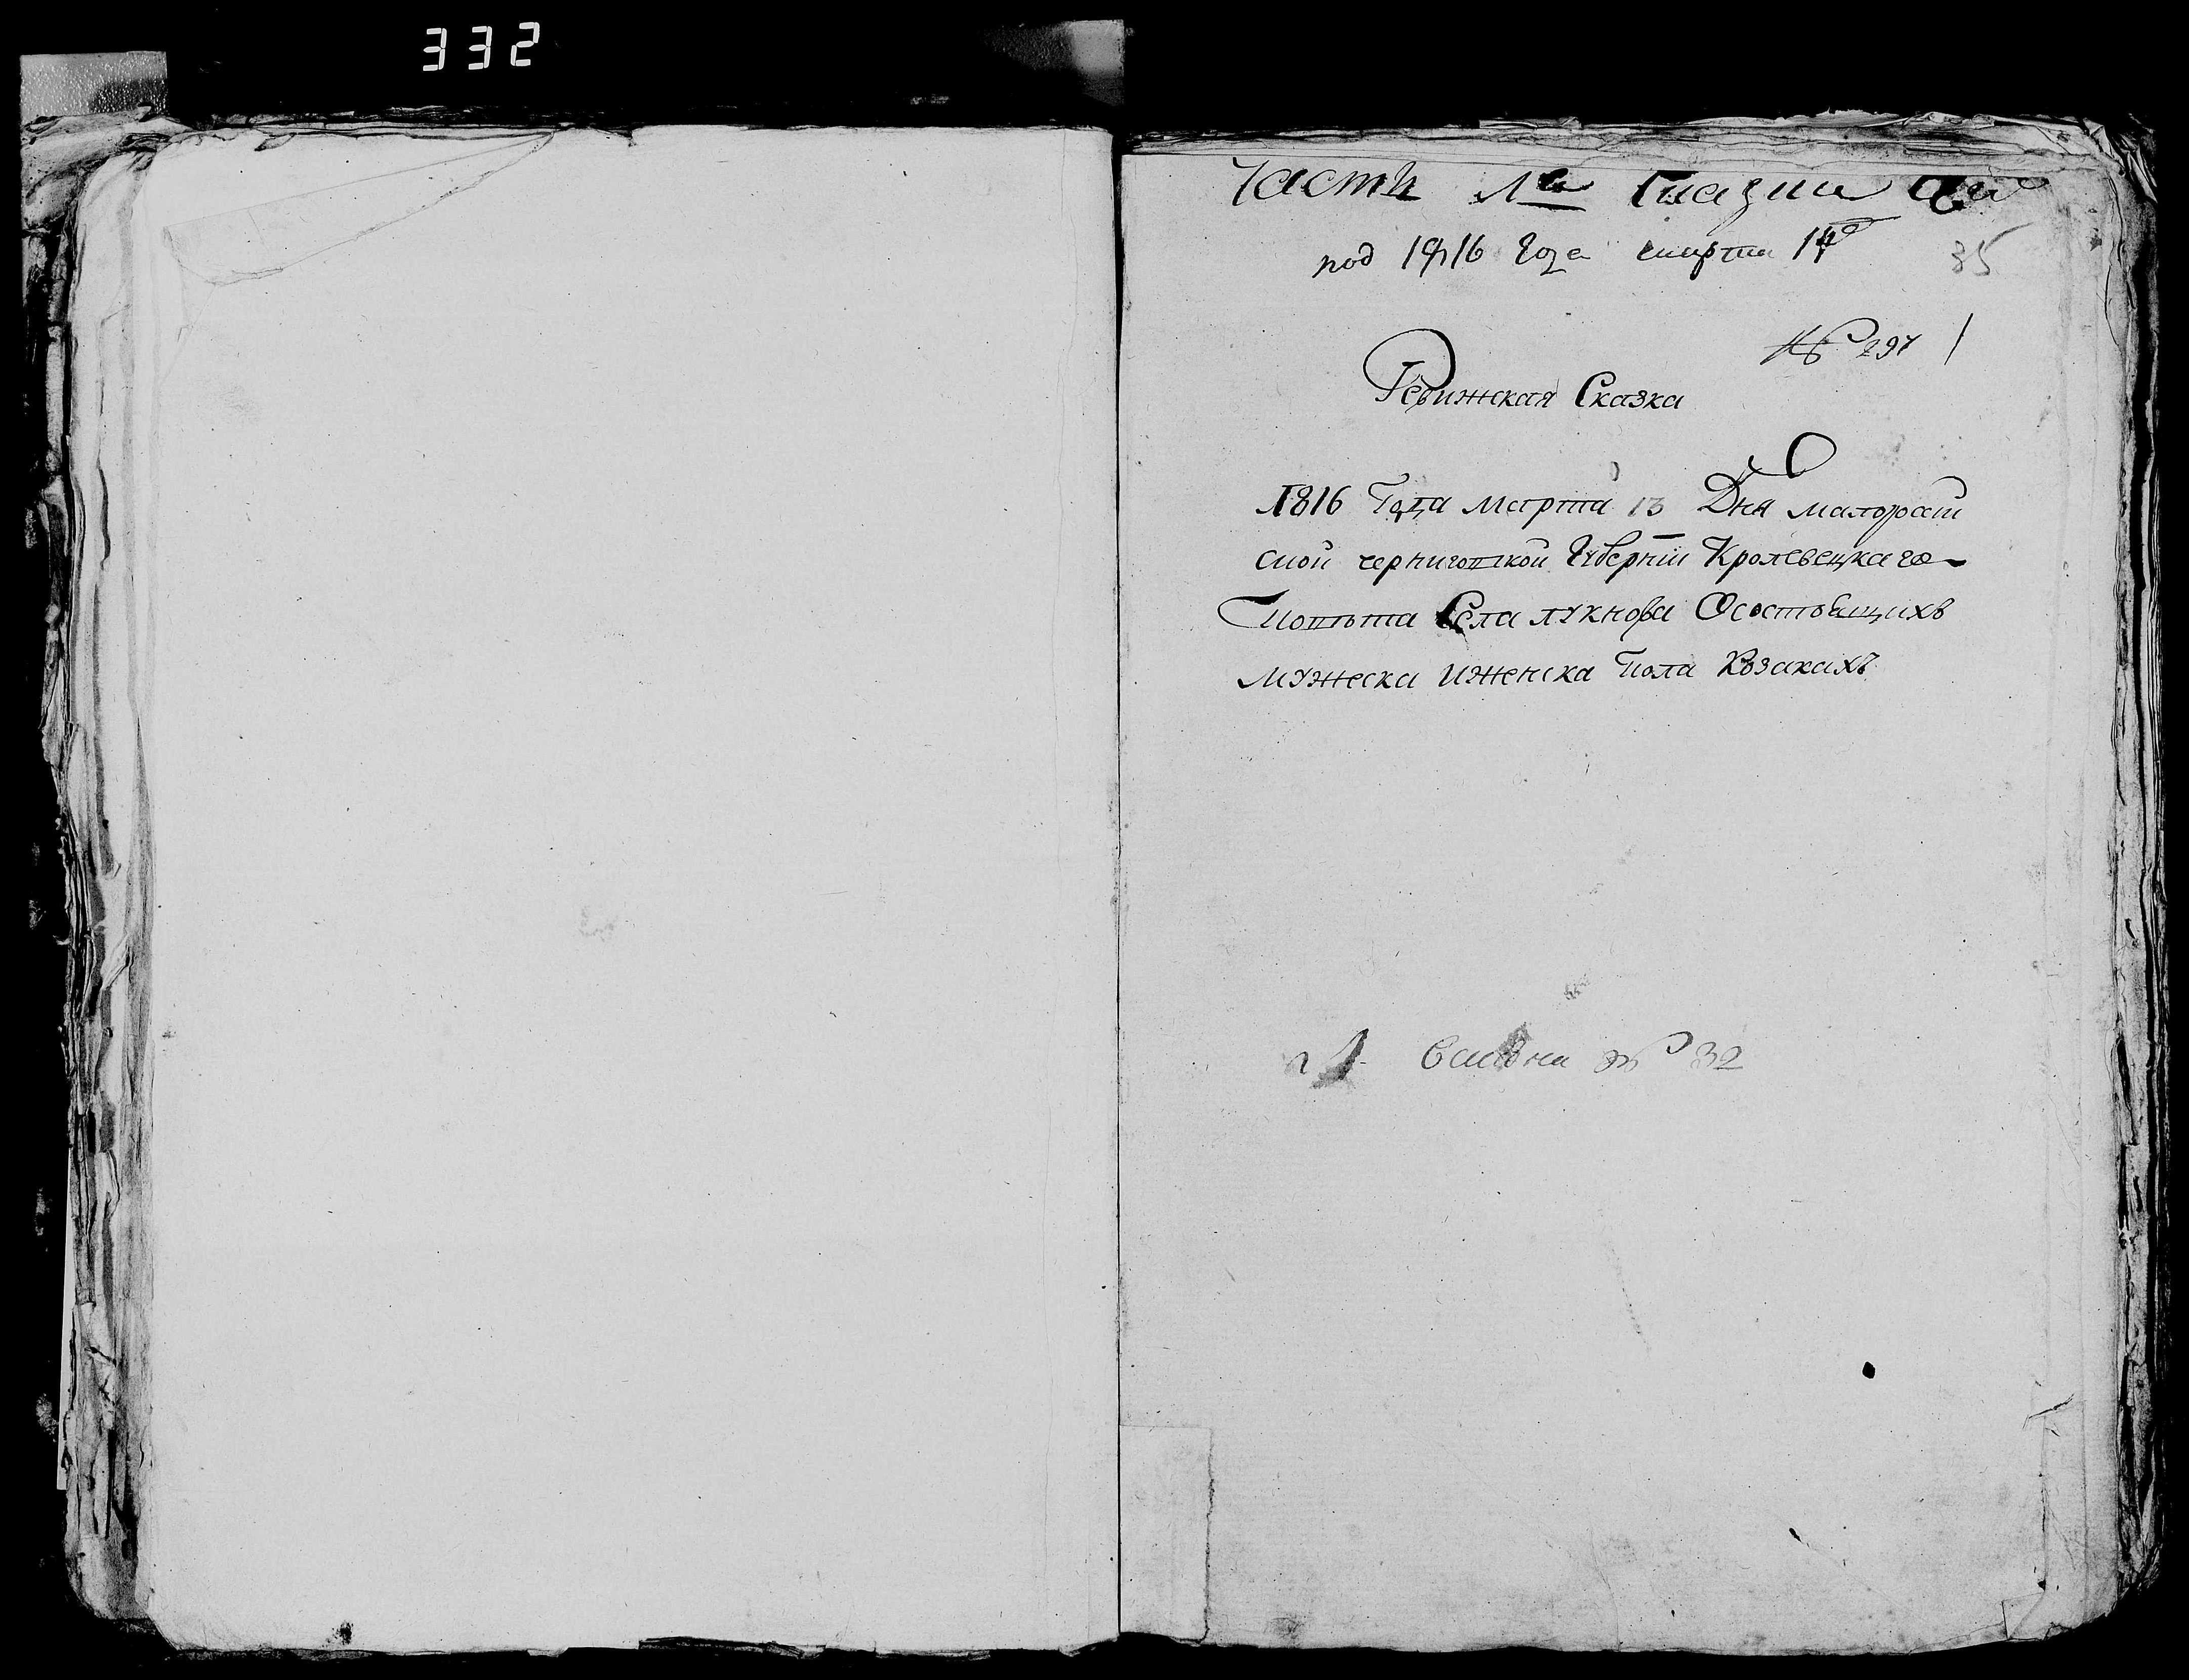 332
Части 1я
под 1816 года марта 14
85
№ 297
Ревижская Сказка
1816 Года марта 13 Дня малоросій
ской черниговской Губернїи Кролевецкаго
Повѣта Села лукнова Осостоящихъ
мужеска иженска пола Козакахъ
№ 32